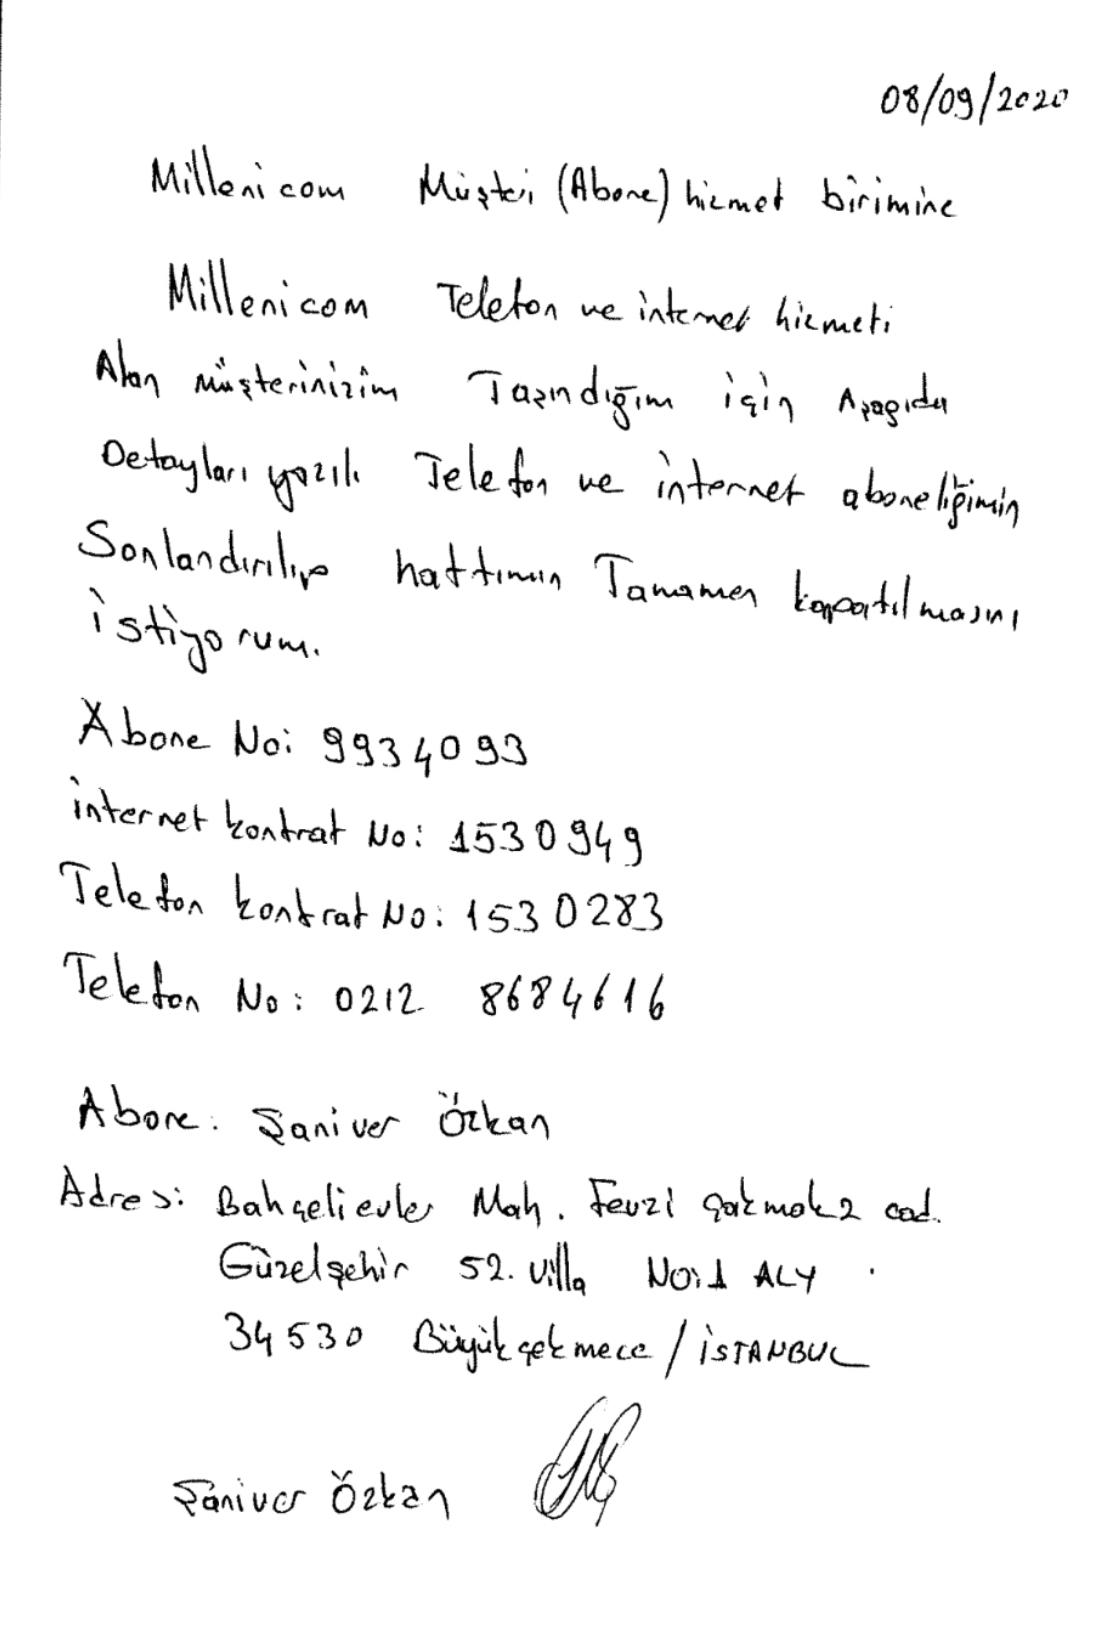 08/09/2020
Millenicom Müşteri (Abone) hizmet birimine
Millenicom Telefon ve internet hizmeti
Alan müşterinizim Taşındığım için Aşagıda
Detayları yazılı Telefon ve internet aboneliğimin
Sonlandırılıp hattımın Tamamen kapatılmasını
istiyorum.
Abone No: 9934093
internet kontrat No: 1530949
Telefon kontrat No: 1530283
Telefon No: 0212 8684616
Abone: Şaniver Özkan
Adres: Bahçelievler Mah. Fevzi Çakmak 2 cad.
Güzelşehir 52. Villa No:1 ALY
34530 Büyükçekmece / İSTANBUL
Şaniver Özkan